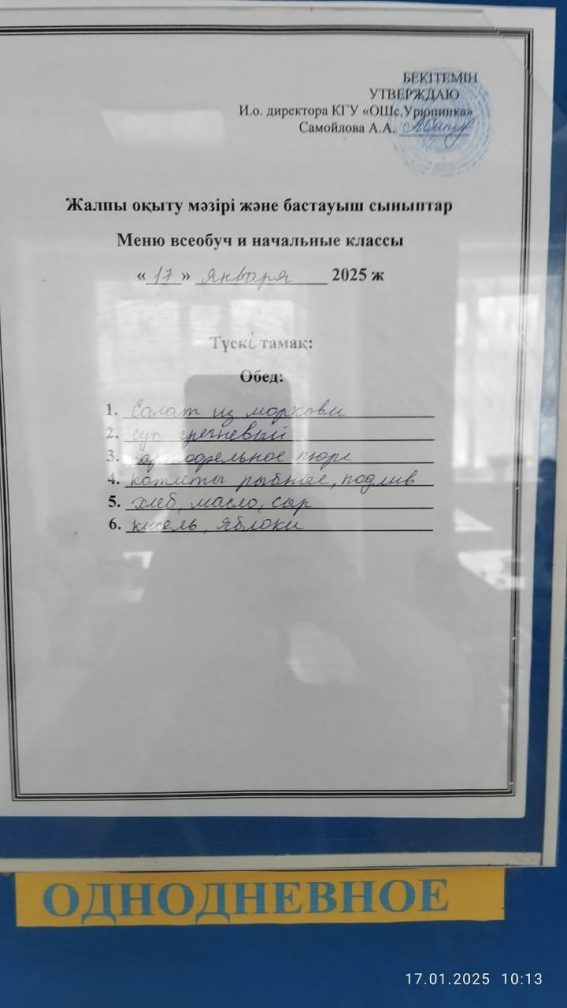 БЕКІТЕМІН
УТВЕРЖДАЮ
И.о. директора КГУ «ОШс.Урюпинка»
Самойлова А.А.
Жалпы оқыту мәзірі және бастауыш сыныптар
Меню всеобуч и начальные классы
«17» января 2025 ж
Түскі тамақ:
Обед:
1. Салат из моркови
2. суп гречневый
3. картофельное пюре
4. котлеты рыбные, подлив
5. хлеб, масло, сыр
6. кисель, яблоки
ОДНОДНЕВНОЕ
17.01.2025 10:13